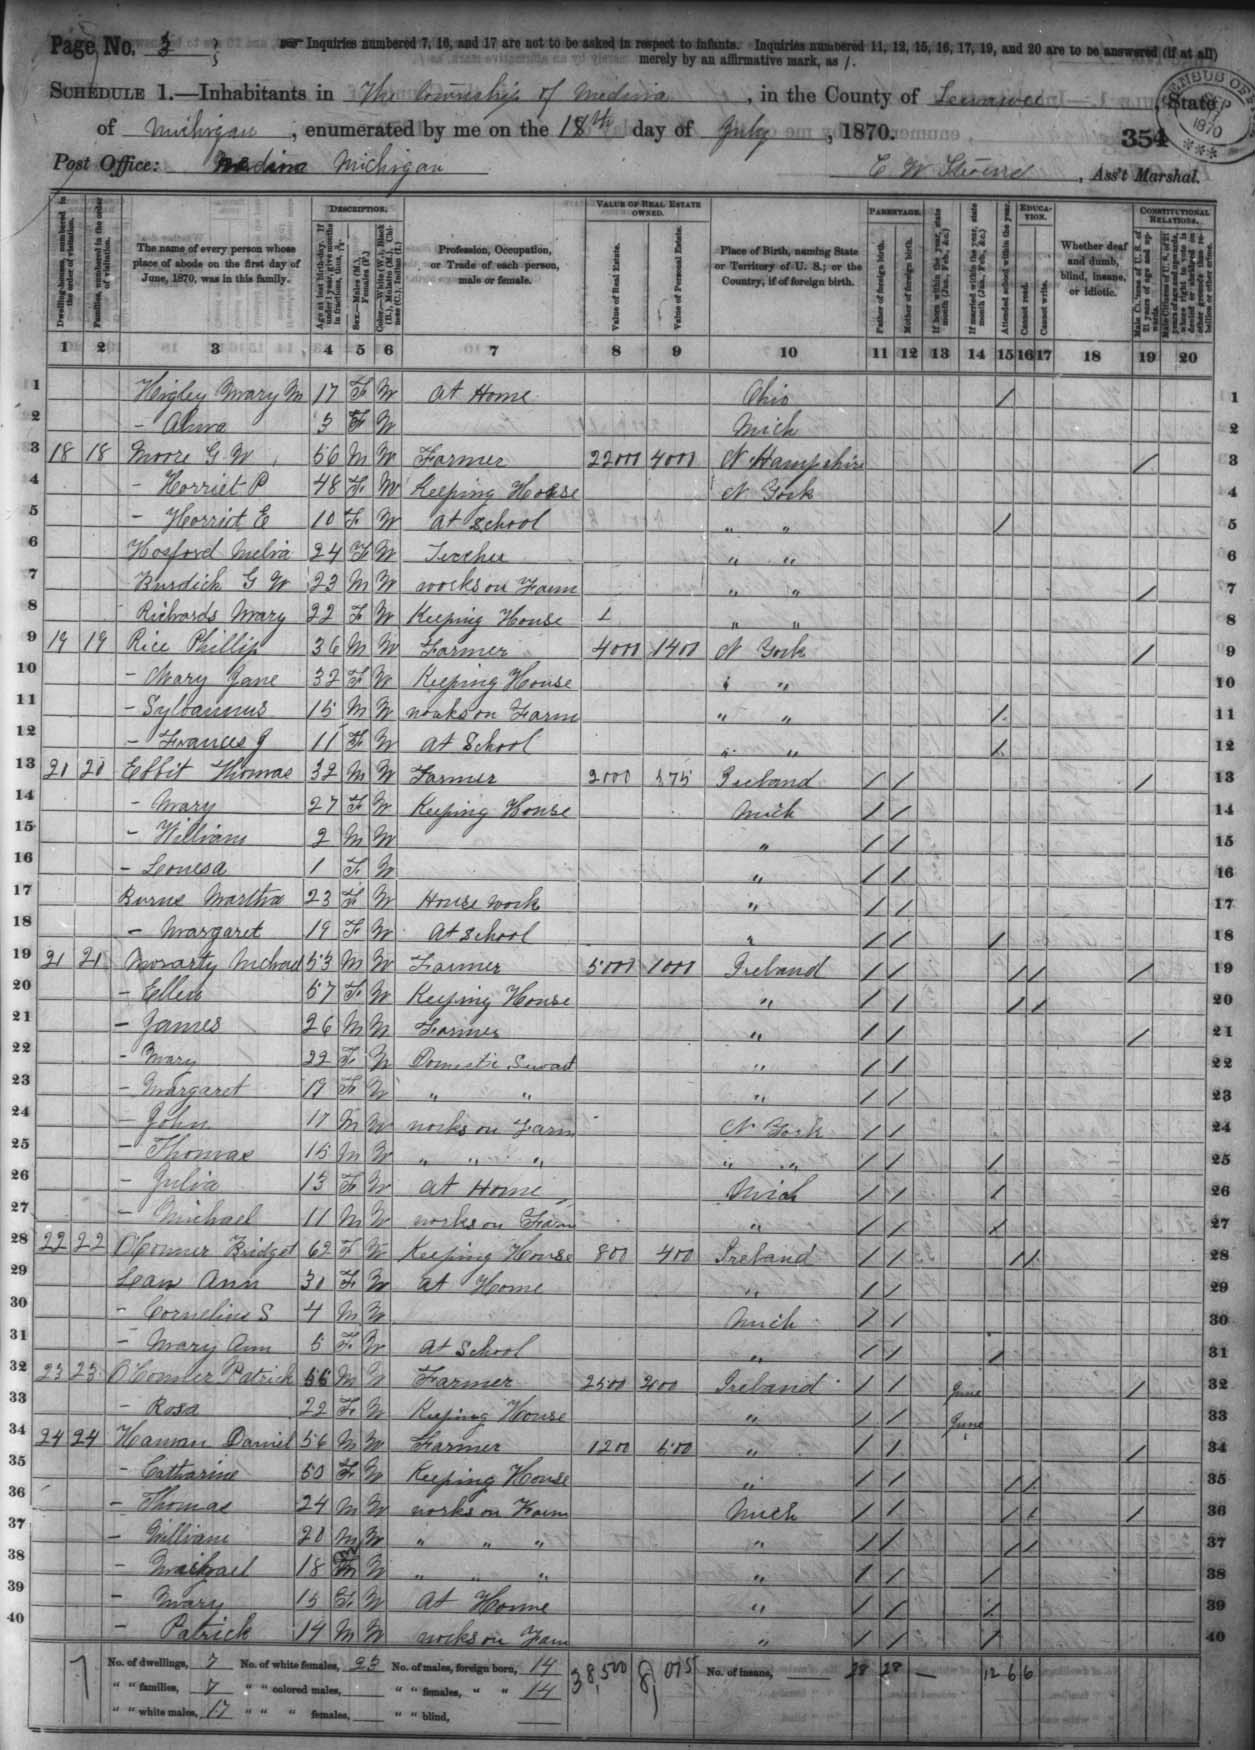 Page No. 3
Inquiries numbered 7, 16, and 17 are not to be asked in respect to infants. Inquiries numbered 11, 12, 15, 16, 17, 19, and 20 are to be answered (if at all)
merely by an affirmative mark, as /.
SCHEDULE 1.—Inhabitants in The township of Medina, in the County of Lenawee, State
of Michigan, enumerated by me on the 18th day of July, 1870.
354
CENSUS OF
SEP
1870
Post Office: Medina Michigan
C W, Ass't Marshal.
Dwelling-houses, numbered in the order of visitation.
Families, numbered in the order of visitation.
The name of every person whose place of abode on the first day of June, 1870, was in this family.
DESCRIPTION.
Age at last birth-day. If under 1 year, give months in fractions, thus,
Sex.—Males (M.), Females (F.)
Color.—White (W.), Black (B.), Mulatto (M.), Chinese (C.), Indian (I.)
Profession, Occupation, or Trade of each person, male or female.
VALUE OF REAL ESTATE OWNED.
Value of Real Estate.
Value of Personal Estate.
Place of Birth, naming State or Territory of U. S.; or the Country, if of foreign birth.
PARENTAGE.
Father of foreign birth.
Mother of foreign birth.
If born within the year, state month (Jan., Feb., &c.)
If married within the year, state month (Jan., Feb., &c.)
Attended school within the year.
EDUCATION.
Cannot read.
Cannot write.
Whether deaf and dumb, blind, insane, or idiotic.
CONSTITUTIONAL RELATIONS.
Male Citizens of U. S. of 21 years of age and upwards.
1 2 3 4 5 6 7 8 9 10 11 12 13 14 15 16 17 18 19 20
1 Higley Mary M 17 F W At Home Ohio / 1
2 - 3 F W Mich 2
3 18 18 Moore G W 56 M W Farmer 22000 4000 N Hampshire / 3
4 - Harriet P 48 F W Keeping House N York 4
5 - Harriet E 10 F W At School " " / 5
6 Hosford Melia 24 F W Teacher " " 6
7 Burdick G W 23 M W works on Farm " " / 7
8 Richards Mary 22 F W Keeping House " " 8
9 19 19 Rice Phillip 36 M W Farmer 4000 1400 N York / 9
10 - Mary Jane 32 F W Keeping House " 10
11 - Sylvannus 15 M W works on Farm " " / 11
12 - Frances J 11 F W At School " " / 12
13 20 20 Ebbit Thomas 32 M W Farmer 2000 875 Ireland / / / 13
14 - Mary 27 F W Keeping House Mich / / 14
15 - William 2 M W " / / 15
16 - Louesa 1 F W " / / 16
17 Burns Martha 23 F W House work " / / 17
18 - Margaret 19 F W At School " / / / 18
19 21 21 Morarty Michael 53 M W Farmer 5000 1000 Ireland / / / / / 19
20 - Ellen 57 F W Keeping House " / / / / 20
21 - James 26 M W Farmer " / / / 21
22 - Mary 22 F W Domestic Servant " / / 22
23 - Margaret 19 F W " " " / / 23
24 - John 17 M W works on Farm N York / / 24
25 - Thomas 15 M W " " " " " / / / 25
26 - Julia 13 F W At Home Mich / / / 26
27 - Michael 11 M W works on Farm " / / / 27
28 22 22 O'Conner Bridget 62 F W Keeping House 800 400 Ireland / / / / 28
29 Lean Ann 30 F W at Home " / / 29
30 - Cornelius S 4 M W Mich / / 30
31 - Mary Ann 5 F W At School " / / / 31
32 23 23 O'Conner Patrick 56 M W Farmer 2500 400 Ireland / / June / 32
33 - Rosa 22 F W Keeping House " / / June 33
34 24 24 Haman Daniel 56 M W Farmer 1200 500 " / / / 34
35 - Catharine 50 F W Keeping House " / / / / 35
36 - Thomas 24 M W works on Farm Mich / / / / / 36
37 - William 20 M W " " " " / / / / 37
38 - Michael 18 M W " " " " / / / 38
39 - Mary 15 F W At Home " / / / 39
40 - Patrick 14 M W works on Farm " / / / 40
No. of dwellings, 7 No. of white females, 23 No. of males, foreign born, 14 38,500 8,075 No. of insane, 28 28 — 12 6 6
" " families, 7 " " colored males, " " females, " " 14
" " white males, 17 " " " females, " " blind,